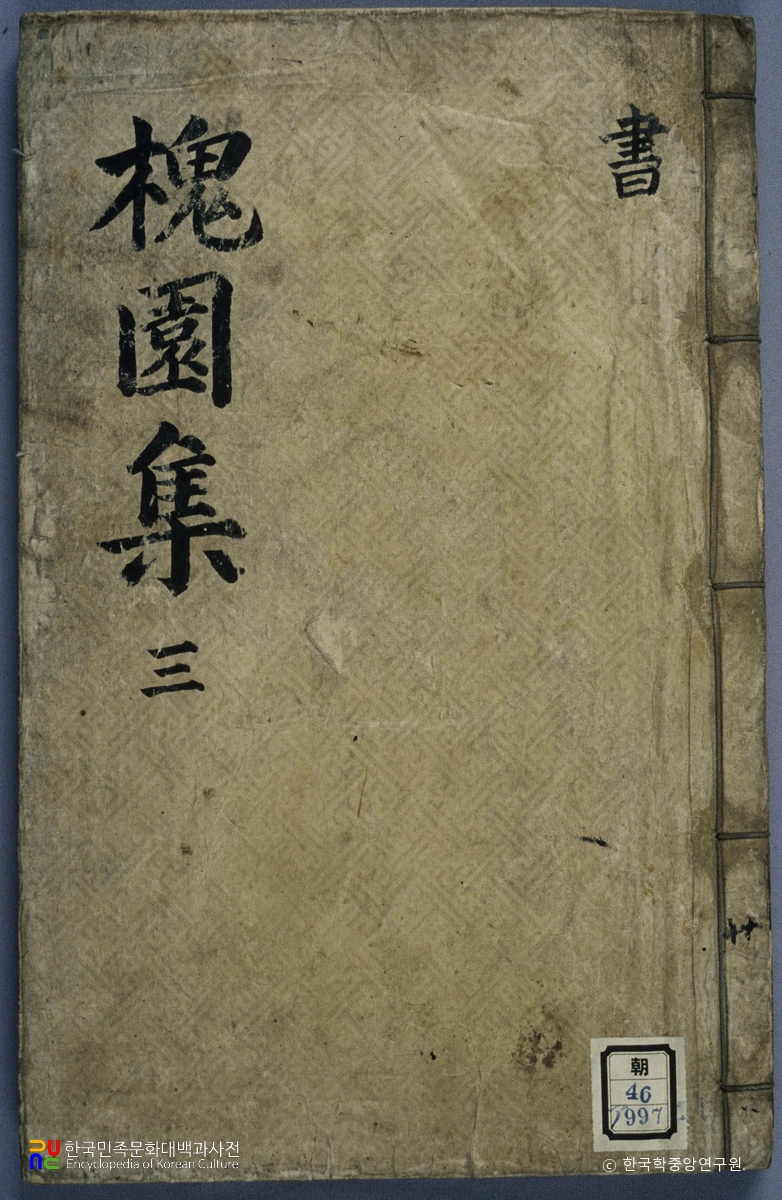 書
槐園集
三
卄
朝
46
1997
한국민족문화대백과사전
Encyclopedia of Korean Culture
© 한국학중앙연구원.